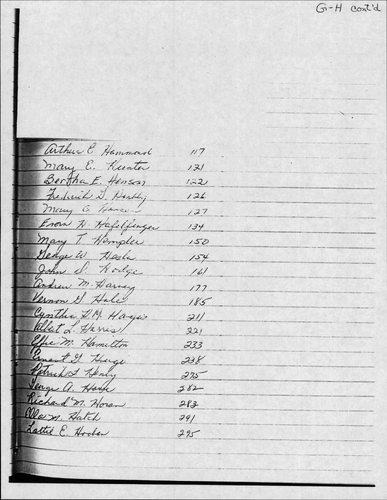 G-H cont'd
Arthur E. Hammond 117
Mary E. 121
Bertha E. Henson 122
Fredrick G. 126
Mary C. 127
Enora H. Hafelfinger 134
Mary T. Hempler 150
George W. 154
John S. Hodge 161
Andrew M. Harvey 177
Vernon G. Hale 185
Cynthia H.M. Hayes 211
Albert L. Harris 221
Effie M. Hamilton 233
Ernest G. Huge 238
Patrick L. Healy 275
George A. 282
Richard M. Horan 283
Ella M. Hatch 291
Lottie E. 295